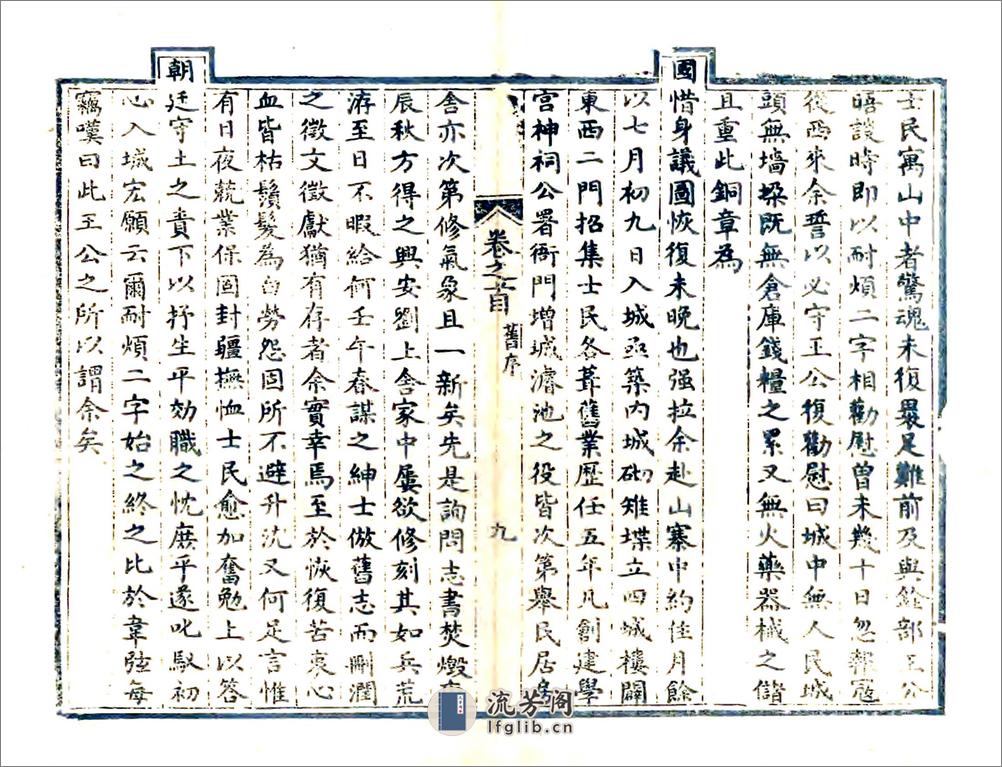 士民寓山中者驚魂未復裹足難前及與銓部王公
晤談時即以耐煩二字相勸慰曾未幾十日忽報寇
從西來余誓以必守王公復勸慰曰城中無人民城
頭無墻垜既無倉庫錢糧之累又無火藥器械之儲
且重此銅章為
國惜身議圖恢復未晚也强拉余赴山寨中約住月餘
以七月初九日入城亟築内城砌雉堞立四城樓闢
東西二門招集士民各葺舊業歷任五年凡創建學
宫神祠公署衙門增城濬池之役皆次第舉民居房
卷之首
舊序
九
舍亦次第修氣象且一新矣先是詢問志書焚燬
辰秋方得之興安劉上舍家中屢欲修刻其如兵荒
洊至日不暇給何壬午春謀之紳士倣舊志而刪潤
之徵文徵獻猶有存者余實幸焉至於恢復苦衷心
血皆枯鬚髮為白勞怨固所不避升沈又何足言惟
有日夜兢業保固封疆撫恤士民愈加奮勉上以答
朝廷守土之責下以抒生平効職之忱庶乎遂叱馭初
心入城宏願云爾耐煩二字始之終之比於韋弦每
竊嘆曰此王公之所以謂余矣
流芳阁
lfglib.cn